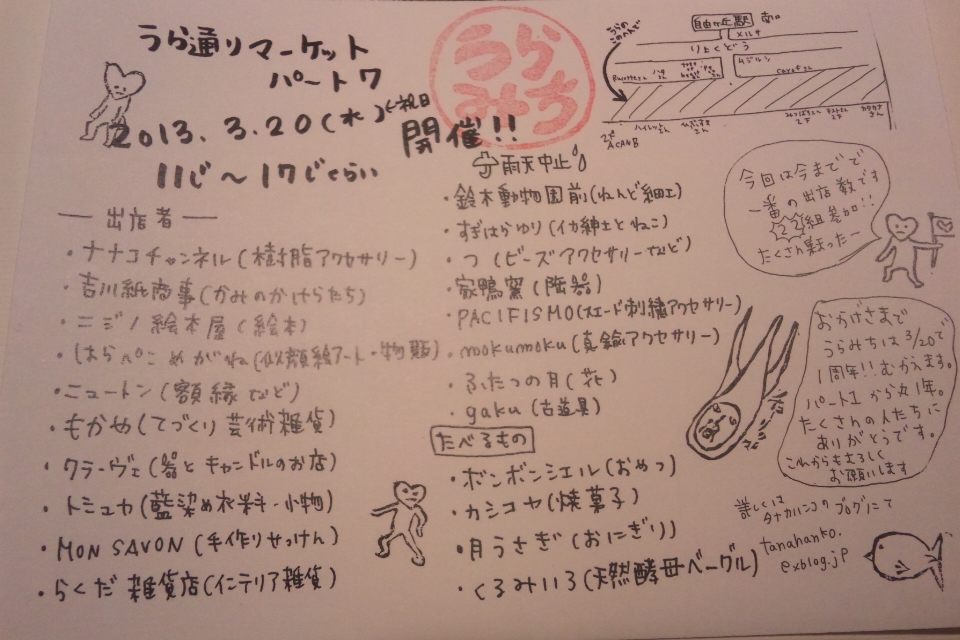 うら通りマーケット
パート7
2013.3.20(水)←祝日
開催!!
11じ～17じくらい
うら
みち
雨天中止
― 出店者 ―
・ナナコチャンネル(樹脂アクセサリー)
・吉川紙商事(かみのかけらたち)
・ニジノ絵本屋(絵本)
・はらぺこめがね(似顔絵アート・物販)
・ニュートン(額縁など)
・もかめ(てづくり芸術雑貨)
・クラーヴェ(器とキャンドルのお店)
・トミュヤ(藍染め衣料・小物)
・MON SAVON(手作りせっけん)
・らくだ雑貨店(インテリア雑貨)
・鈴木動物園前(ねんど細工)
・すぎはらゆり(イカ紳士とねこ)
・つ(ビーズアクセサリーなど)
・家鴨窯(陶器)
・PACIFISMO(スエード刺繍アクセサリー)
・mokumoku(真鍮アクセサリー)
・ふたつの月(花)
・gaku(古道具)
たべるもの
・ボンボンシェル(おめっ)
・カシコヤ(焼菓子)
・月うさぎ(おにぎり)
・くるみいろ(天然酵母ベーグル)
自由ヶ丘駅 南口
メルサ
りょくどう
うらの
このへんで
ムジルシ
2F
ACANB
ハイシッさん
みつばちさん
2F
カタカナ
さん
今回は今までで
一番の出店数です
22組参加!!
たくさん集まったー
おかげさまで
うらみちは3/20で
1周年!!むかえます。
パート1から丸1年。
たくさんの人たちに
ありがとうです。
これからもよろしく
お願いします
詳しくは
タナカハンコのブログにて
tanahanko.
exblog.jp